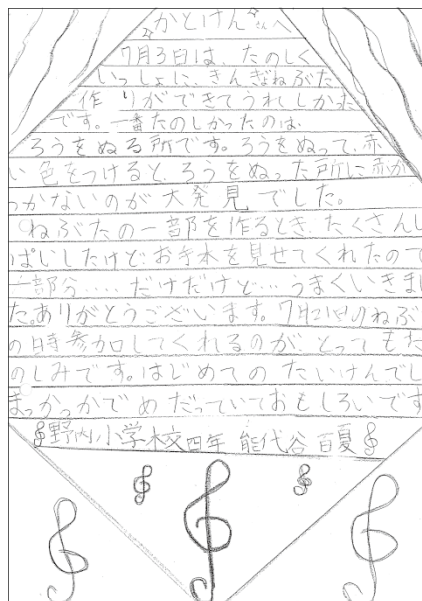 かとけんさんへ
7月3日は、たのしく
いっしょに、きんぎょねぶた
作りができてうれしかった
です。一番たのしかったのは、
ろうをぬる所です。ろうをぬって、赤
い色をつけると、ろうをぬった所に赤が
つかないのが大発見でした。
ねぶたの一部を作るとき、たくさんし
ぱいしたけど、お手本を見せてくれたので
一部分……だけだけど…うまくいきまし
た。ありがとうございます。7月21日のねぶ
の時参加してくれるのが、とってもた
のしみです。はじめてのたいけんでし
まっかっかでめだっていておもしろいです
野内小学校四年 能代谷 百夏